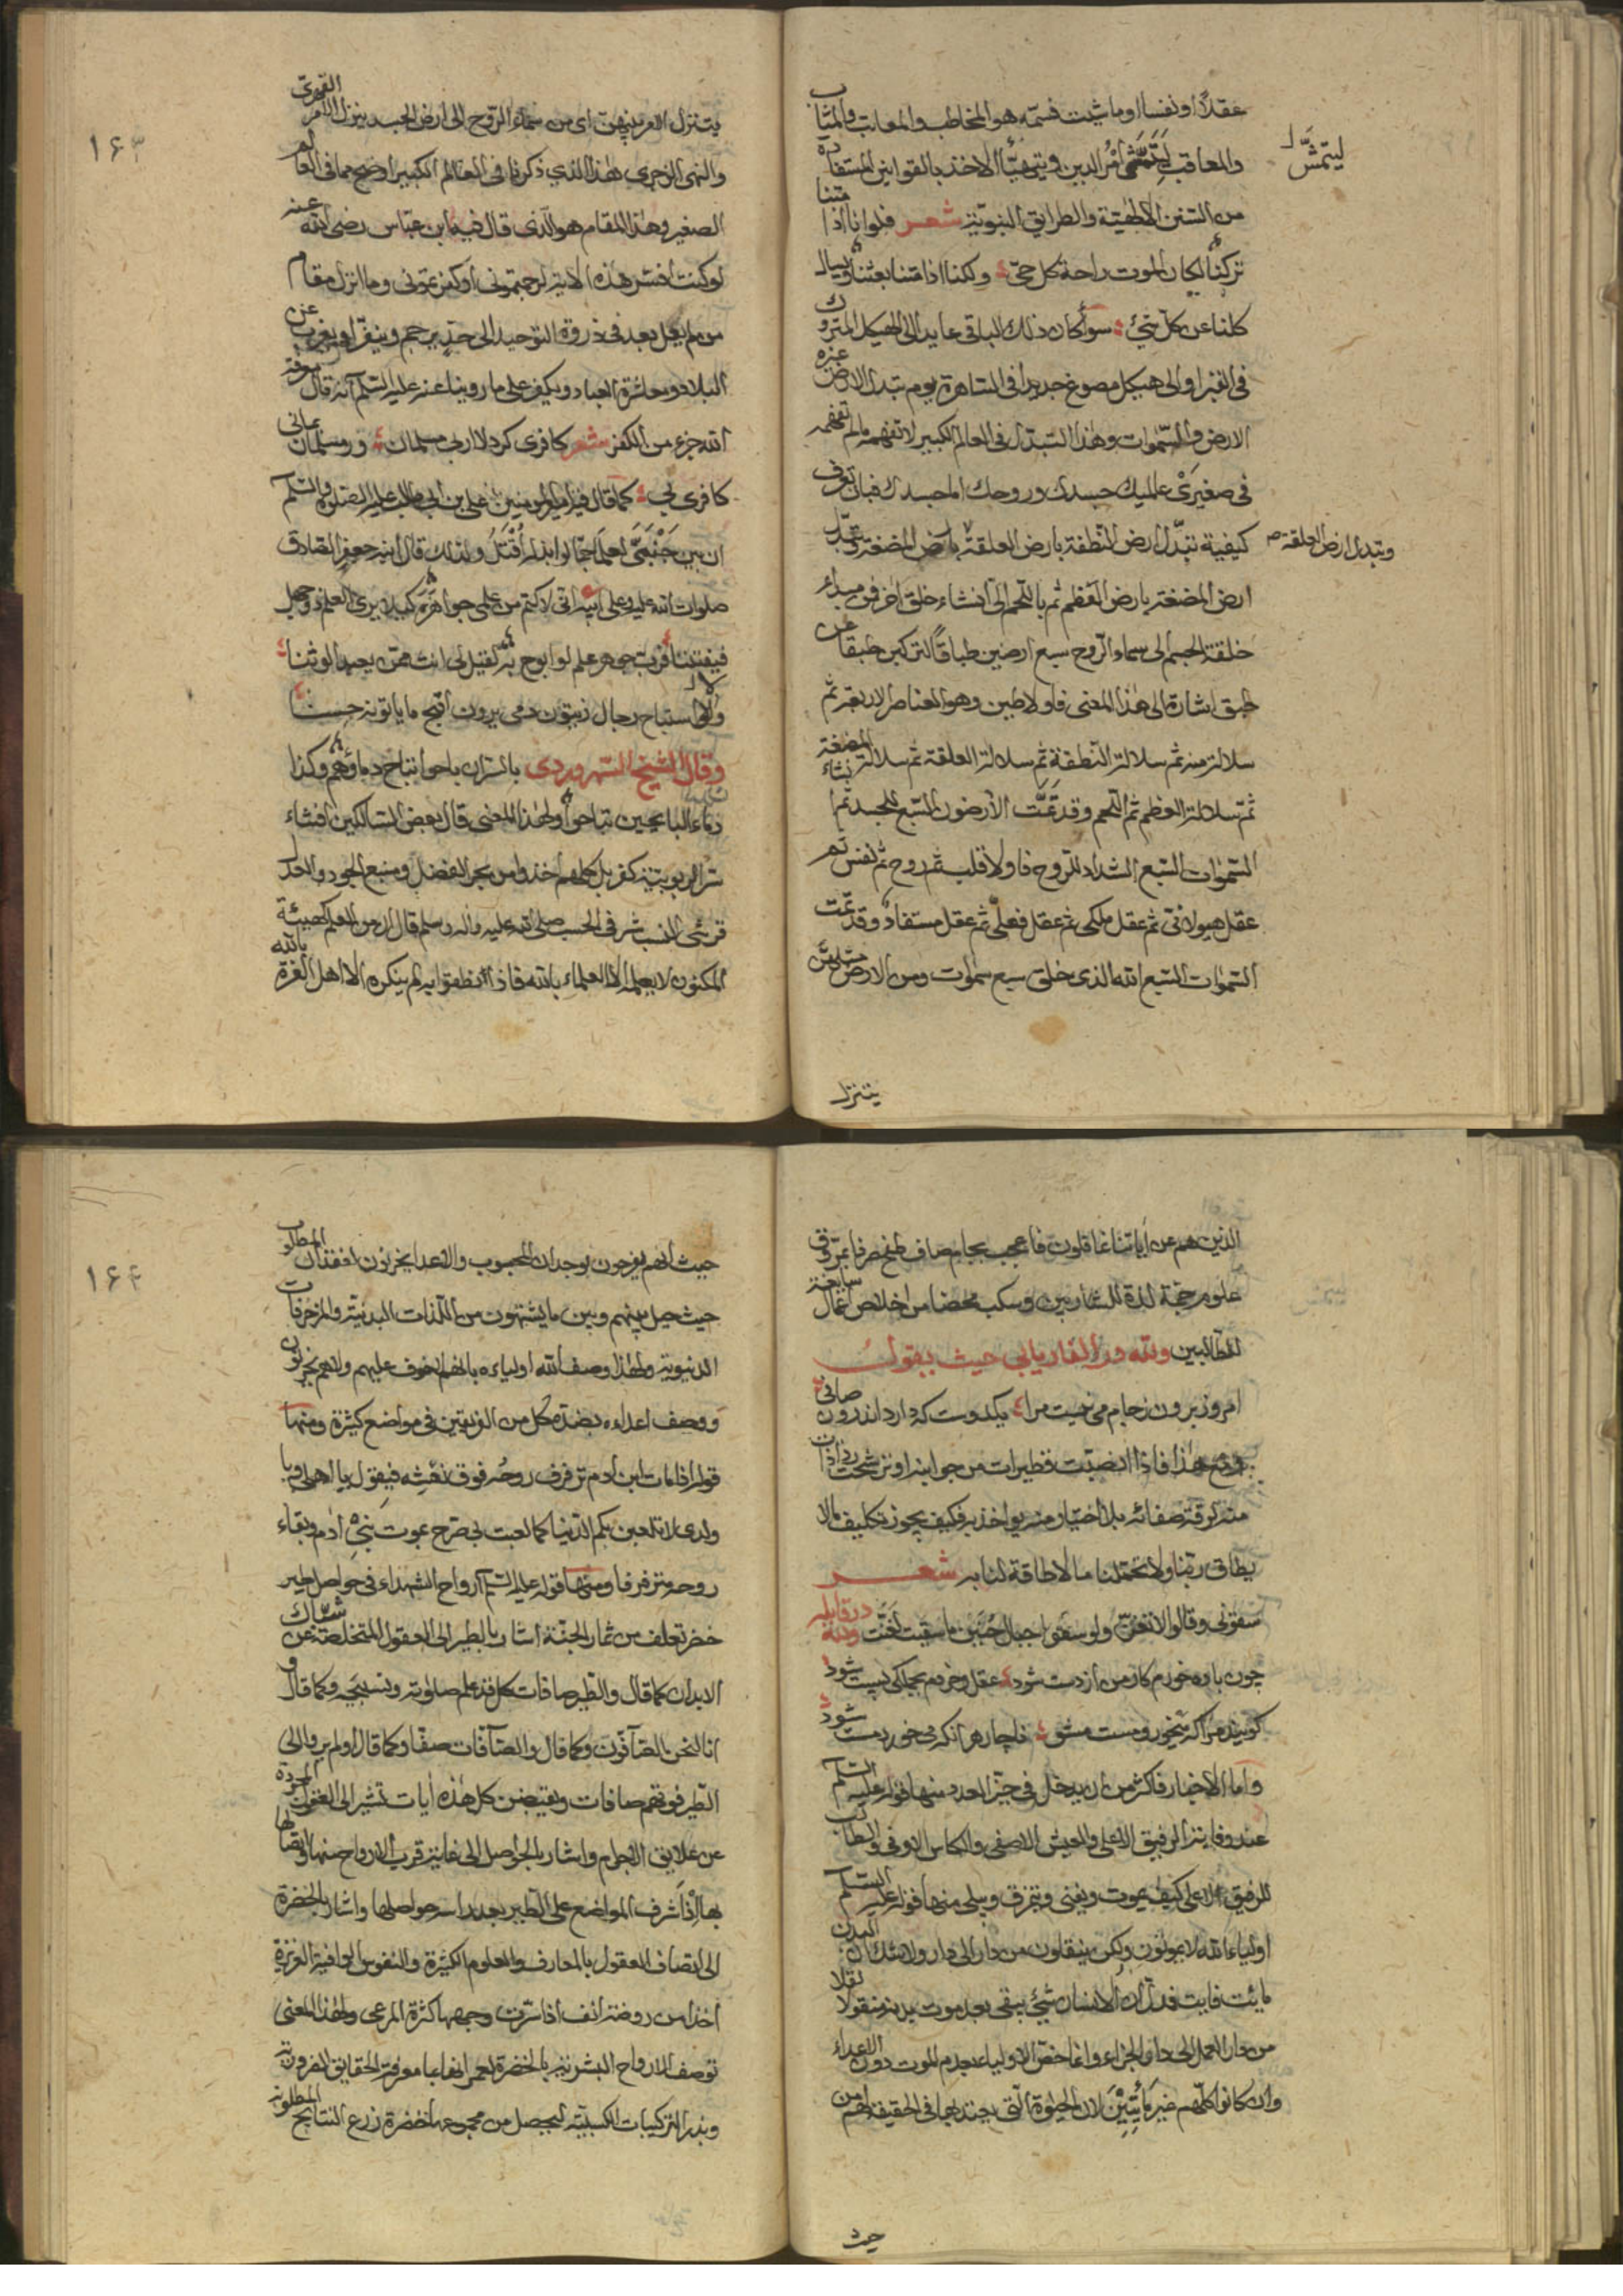 عقلًا او نفسا او ما شئت فسمّه هو المخاطب والمعاتب والمثاب
والمعاقب ليتمشّى امر الدين ويتهيّأ الاخذ بالقوانين المستفادة
ليتمشّى
من السنن الالهيّة والطرايق النبويّة شعر فلو انا اذا متنا
تركنا لكان الموت راحة كل حيّ ولكنا اذا متنا بعثنا ويسال
كلنا عن كل شيئ سوأ كان ذلك الباقى عايد الى الهيكل المتروك
فى القبر او الى هيكل مصوغ جديدا فى الساهرة يوم تبدل الارض غيره
الارض والسموات وهذا التبدّل فى العالم الكبير لا تفهمه ما لم تفهمه
فى صغيرى عالميك جسدك وروحك المجسدك فبان تعرف
كيفية تبدّل ارض النطفة بارض العلقة بارض المضغة وتبدّل
وتبدل ارض العلقة صح
ارض المضغة بارض العظم ثم باللحم الى انشاء خلق اخر فمن مبداء
خلقة الجسم الى سماء الروح سبع ارضين طباقًا لتركبن طبقا عن
طبق اشارة الى هذا المعنى فاولا طين وهو العناصر الاربعة ثم
سلالة منه ثم سلالة النطفة ثم سلالة العلقة ثم سلالة المضغة
ثم سلالة العظم ثم اللحم وقد تمّت الارضون السبع للجسد ثم انشاء
السموات السبع الشداد للروح فاولا قلب ثم روح ثم نفس ثم
عقل هيولانى ثم عقل ملكى ثم عقل فعلى ثم عقل مستفاد وقد تمّت
السموات السبع الله الذى خلق سبع سموات ومن الارض مثلهنّ
يتنزل
١٦٣
يتنزل الامر بينهن اى من سماء الروح الى ارض الجسد ينزل الامر القهرىّ
والنهى الزجرى هذا الذي ذكرنا فى العالم الكبير اوضح مما فى العالم
الصغير وهذا المقام هو الّذى قال فيه ابن عبّاس رضى الله عنه
لو كنت افسر هذه الاية لرجمتمونى او كفرتمونى وما انزل مقام
من لم يصل بعد فى ذروة التوحيد الى حدّ يرجم وينفّر او يغرب عن
البلاد ومعاشرة العباد ويكفر على ما روينا عنه عليه السلم انه قال معرفة
الله جزء من الكفر شعر كافرى كرد لا ارى مسلمان ور مسلمان بمانى
كافرى نى كما قال فيه امير المؤمنين علي بن ابى طالب عليه الصلوة والسلم
ان بين جنبىّ لعلما جمّا لو ابذله اُقْتَلُ ولذلك قال ابنه جعفر الصادق
صلوات الله عليه وعلى ابيه انى لاكتم من علمى جواهره كيلا يرى العلم ذو جهل
فيفتتنا فربّ جوهر علم لو ابوح به لقيل لى انت ممن يعبد الوثنا
ولاستباح رجال زيتون دمى يرون اقبح ما ياتونه حسنا
وقال الشيخ السهروردى بالسر ان باحوا تباح دماؤهم وكذا
دماء البائحين تباح ولهذا المعنى قال بعض السالكين افشاء
سر الربوبية كفر بل كلهم اخذوا من بحر الفضل ومنبع الجود والعدل
قرشى النسب شرفى الحسب صلى الله عليه واله وسلم قال ان من العلم كهيئة
المكنون لا يعلمه الا العلماء بالله فاذا نطقوا به لم ينكره الا اهل الغرة بالله
الذين هم عن اياتنا غافلون فاعجب بجام صاف طفح صرفا بمرّوق
علوم حجمة لذة للشاربين وسكب محضا من اخلاص اعمال سايغة
للطالبين ولله در الفاريابي حيث يقول
امروز برون ز جام مى نيست مرا يكدوست كه دارد اندرون صافى
ومع هذا فاذا انصبّت قطيرات من جوانبه او ترشحت رذاذات
منه لرقة صفائه بلا اختيار منه يواخذ به فكيف يجوز تكليف ما لا
يطاق ربّنا ولا تحملنا ما لا طاقة لنا به شعر
سقونى وقالوا لا تغنّ ولو سقوا جبال حنين ما سقيت لغنّت ولله در قايله
چون باده خورم كار من از دست شود عقل وخردم بجملكى پست شود
كويند مرا كه مىخور ومست مشو ناچار هر انكه مى خورد مست شود
واما الاخبار فاكثر من ان يدخل فى حيّز العدد منها قوله عليه السلم
عند وفاته الرفيق الاعلى والعيش الاصفى والكاس الاوفى والطالب
للرفيق الاعلى كيف يموت ويفنى ويتمزق ويبلى منها قوله عليه السلم
اولياء الله لا يموتون ولكن ينقلون من دار الى دار ولا شك ان البدن
مايت فايت فدلّ ان الانسان شيئ يبقى بعد موت بدنه منقولا نقلا
من دار العمل الى دار الجزاء وانما خصّ الاولياء بعدم الموت دون الاعداء
وان كانوا كلّهم غير مائتين لان الحيوة الّتى يعتد بها فى الحقيقة لهم من
حيث
١٦٤
حيث انهم يفرحون بوجدان المحبوب والاعداء يحزنون لفقدان المطلوب
حيث حيل بينهم وبين ما يشتهون من اللذات البدنية والمزخرفات
الدنيوية ولهذا وصف الله اولياءه بانهم لا خوف عليهم ولا هم يحزنون
ووصف اعداءه بضدّه كل من الفريقين فى مواضع كثيرة ومنها
قوله اذا مات ابن ادم ترفرف روحه فوق نعشه فيقول يا اهلى ويا
ولدى لا تلعبن بكم الدنيا كما لعبت بى صرح بموت بنى ادم وبقاء
روحه مترفرفا ومنها قوله عليه السلم ارواح الشهداء فى حواصل طير
خضر تعلف من ثمار الجنّة اشار بالطير الى العقول المتخلصة عن شباك
الابدان كما قال والطير صافات كل قد علم صلوته وتسبيحه وكما قال و
انا لنحن الصآفّون وكما قال والصآفات صفّا وكما قال اولم يروا الى
الطير فوقهم صافات ويقبضن كل هذه ايات تشير الى العقول المجردة
عن علايق الاجرام واشار بالحواصل الى غاية قرب الارواح منها واتصالها
بها اذ اشرف المواضع على الطير بعد راسه حواصلها واشار بالخضرة
الى اتصاف العقول بالمعارف والعلوم الكثيرة والنفوس الوافية الغزيرة
اخذا من روضة انف اذا سرّت وجمهها كثرة المرعى ولهذا المعنى
توصف الارواح البشرية بالخضرة
وبذر التركيبات الكسبيّة ليحصل من مجموعها خضرة زرع النتايج المطلوبة